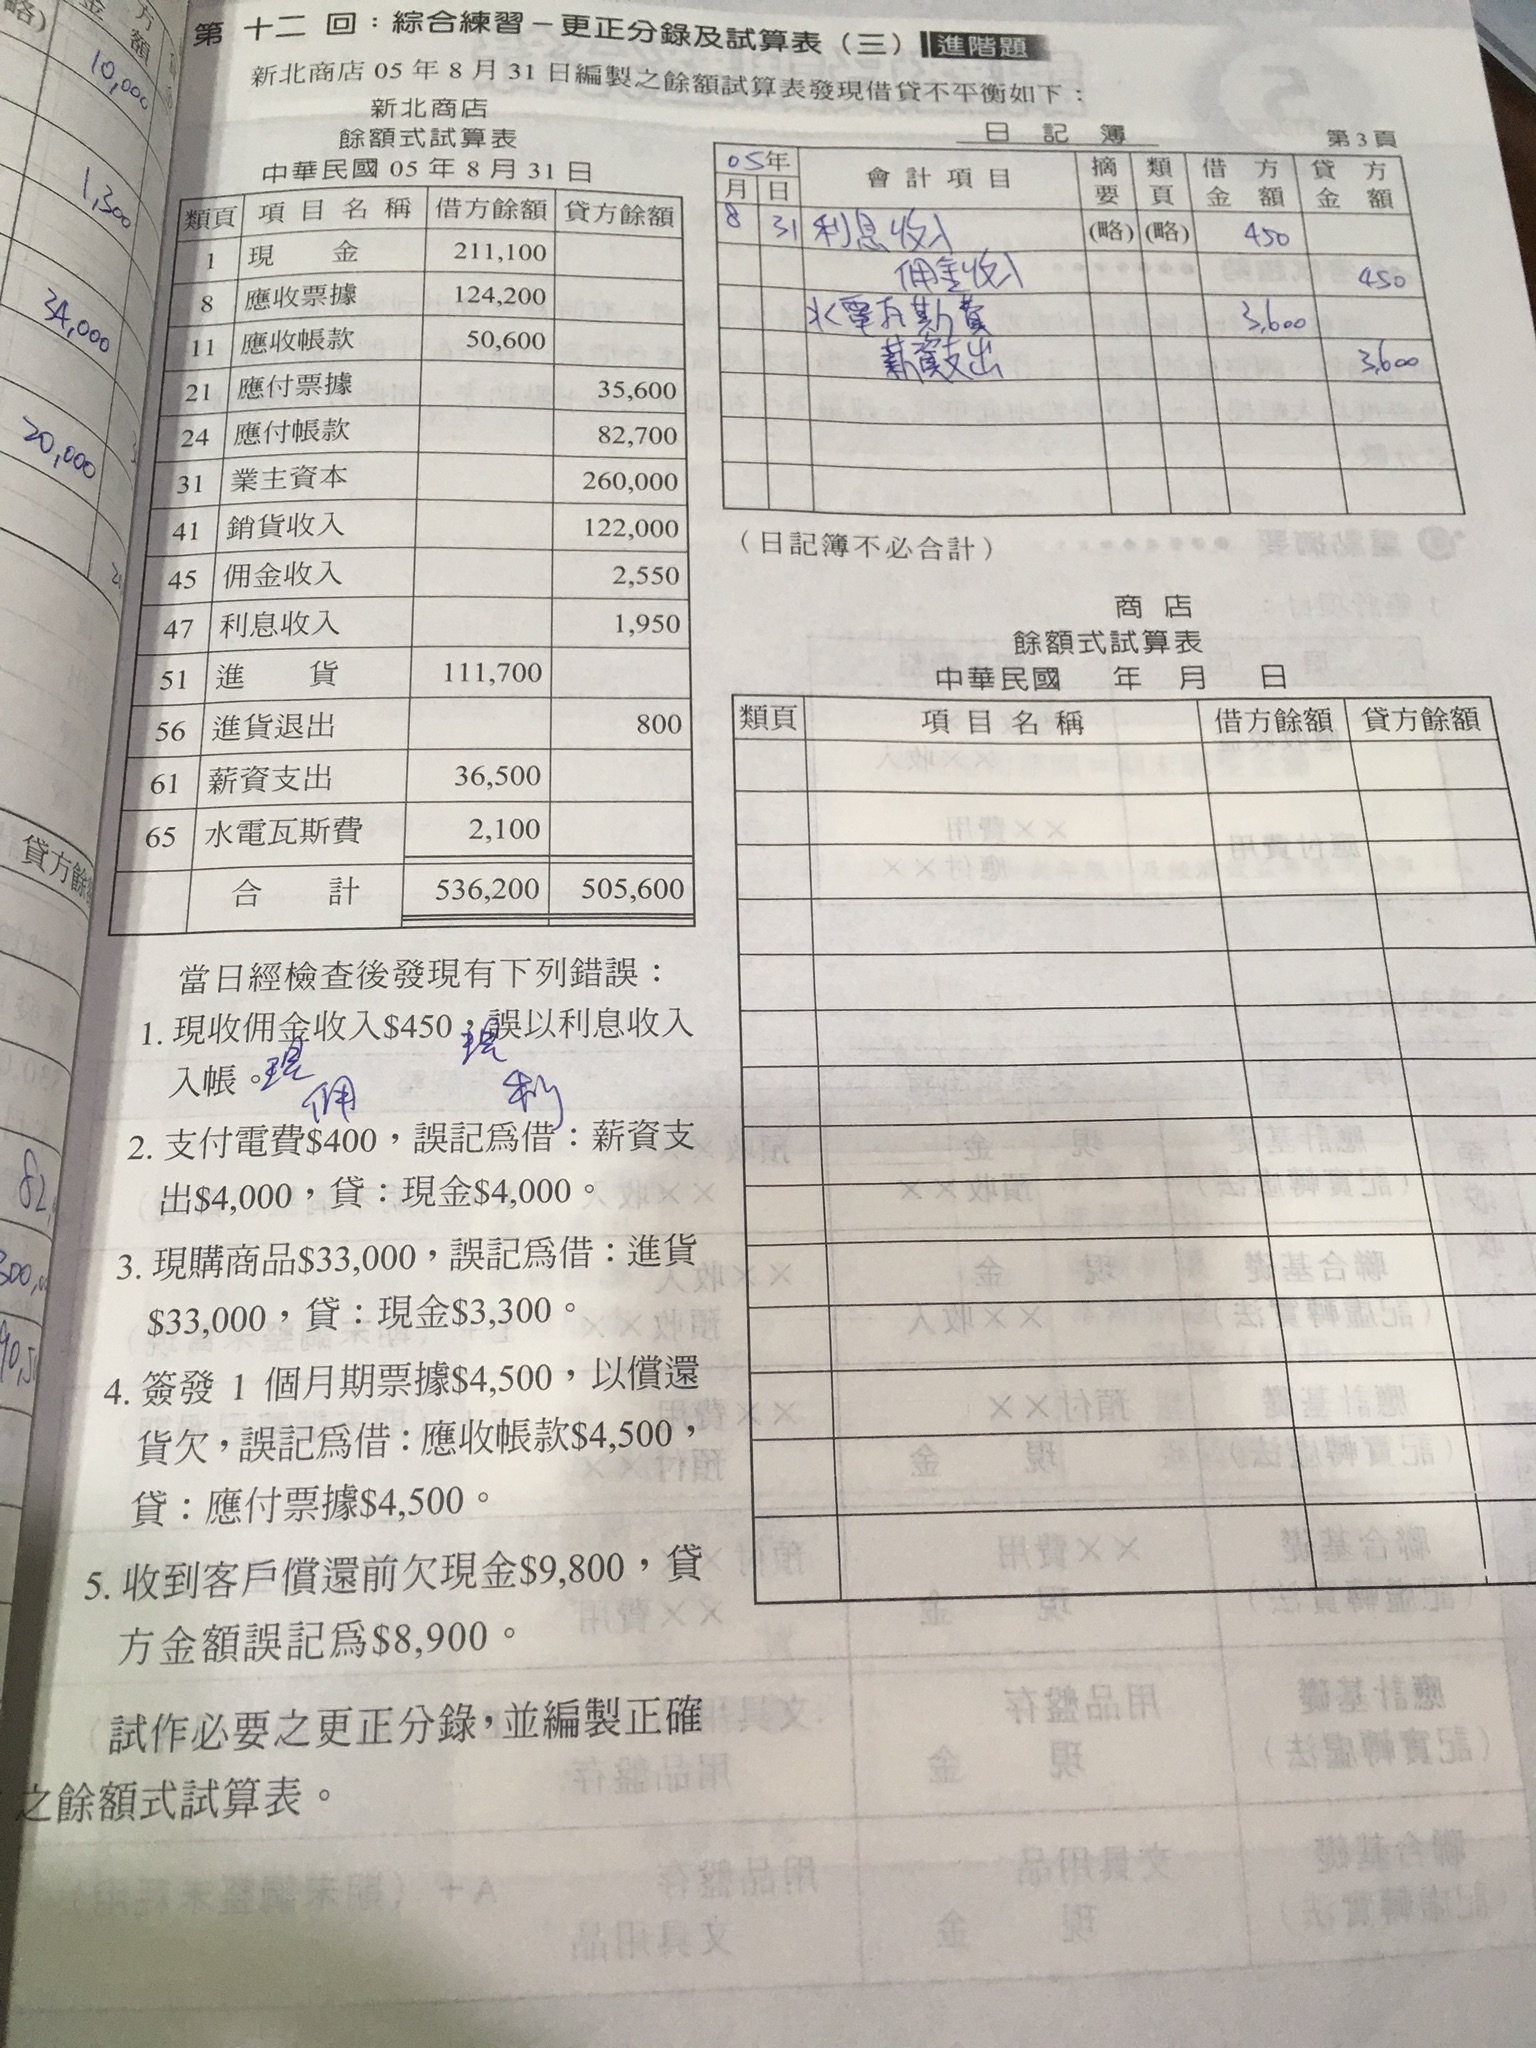 第 十二 回：綜合練習－更正分錄及試算表（三） 進階題
新北商店 05 年 8 月 31 日編製之餘額試算表發現借貸不平衡如下：
新北商店
餘額式試算表
中華民國 05 年 8 月 31 日
類頁 項目名稱 借方餘額 貸方餘額
1 現 金 211,100
8 應收票據 124,200
11 應收帳款 50,600
21 應付票據 35,600
24 應付帳款 82,700
31 業主資本 260,000
41 銷貨收入 122,000
45 佣金收入 2,550
47 利息收入 1,950
51 進 貨 111,700
56 進貨退出 800
61 薪資支出 36,500
65 水電瓦斯費 2,100
合 計 536,200 505,600
當日經檢查後發現有下列錯誤：
1. 現收佣金收入$450，誤以利息收入
入帳。
現 現
佣 利
2. 支付電費$400，誤記為借：薪資支
出$4,000，貸：現金$4,000。
3. 現購商品$33,000，誤記為借：進貨
$33,000，貸：現金$3,300。
4. 簽發 1 個月期票據$4,500，以償還
貨欠，誤記為借：應收帳款$4,500，
貸：應付票據$4,500。
5. 收到客戶償還前欠現金$9,800，貸
方金額誤記為$8,900。
試作必要之更正分錄，並編製正確
之餘額式試算表。
日 記 簿 第3頁
05年 會計項目 摘要 類頁 借方金額 貸方金額
月 日
8 31 利息收入 (略) (略) 450
佣金收入 450
水電瓦斯費 3,600
薪資支出 3,600
（日記簿不必合計）
商 店
餘額式試算表
中華民國 年 月 日
類頁 項目名稱 借方餘額 貸方餘額
略)
方
金 額
10,000
1,300
34,000
20,000
貸方餘
82,